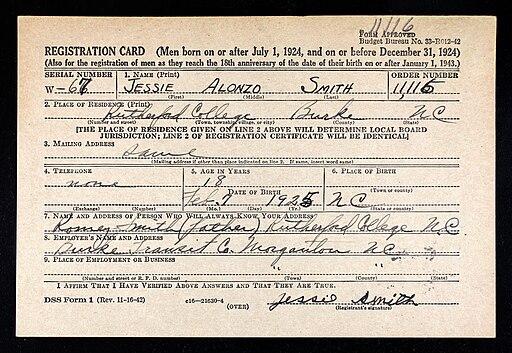 11116
FORM APPROVED
Budget Bureau No. 33-R012-42
REGISTRATION CARD (Men born on or after July 1, 1924, and on or before December 31, 1924)
(Also for the registration of men as they reach the 18th anniversary of the date of their birth on or after January 1, 1943.)
SERIAL NUMBER 1. NAME (Print) ORDER NUMBER
W-67 JESSIE ALONZO SMITH 11,115
(First) (Middle) (Last)
2. PLACE OF RESIDENCE (Print)
Rutherford College Burke NC
(Number and street) (Town, township, village, or city) (County) (State)
[THE PLACE OF RESIDENCE GIVEN ON LINE 2 ABOVE WILL DETERMINE LOCAL BOARD
JURISDICTION; LINE 2 OF REGISTRATION CERTIFICATE WILL BE IDENTICAL]
3. MAILING ADDRESS
Same
(Mailing address if other than place indicated on line 2. If same, insert word same)
4. TELEPHONE 5. AGE IN YEARS 6. PLACE OF BIRTH
none 18
DATE OF BIRTH (Town or county)
Feb. 7 1925 NC
(Exchange) (Number) (Mo.) (Day) (Yr.) (State or country)
7. NAME AND ADDRESS OF PERSON WHO WILL ALWAYS KNOW YOUR ADDRESS
Romey Smith (father) Rutherford College N.C.
8. EMPLOYER'S NAME AND ADDRESS
Burke Transit Co. Morganton N.C.
9. PLACE OF EMPLOYMENT OR BUSINESS
" "
(Number and street or R. F. D. number) (Town) (County) (State)
I AFFIRM THAT I HAVE VERIFIED ABOVE ANSWERS AND THAT THEY ARE TRUE.
DSS Form 1 (Rev. 11-16-42) c16-21630-4 Jessie Smith
(OVER) (Registrant's signature)